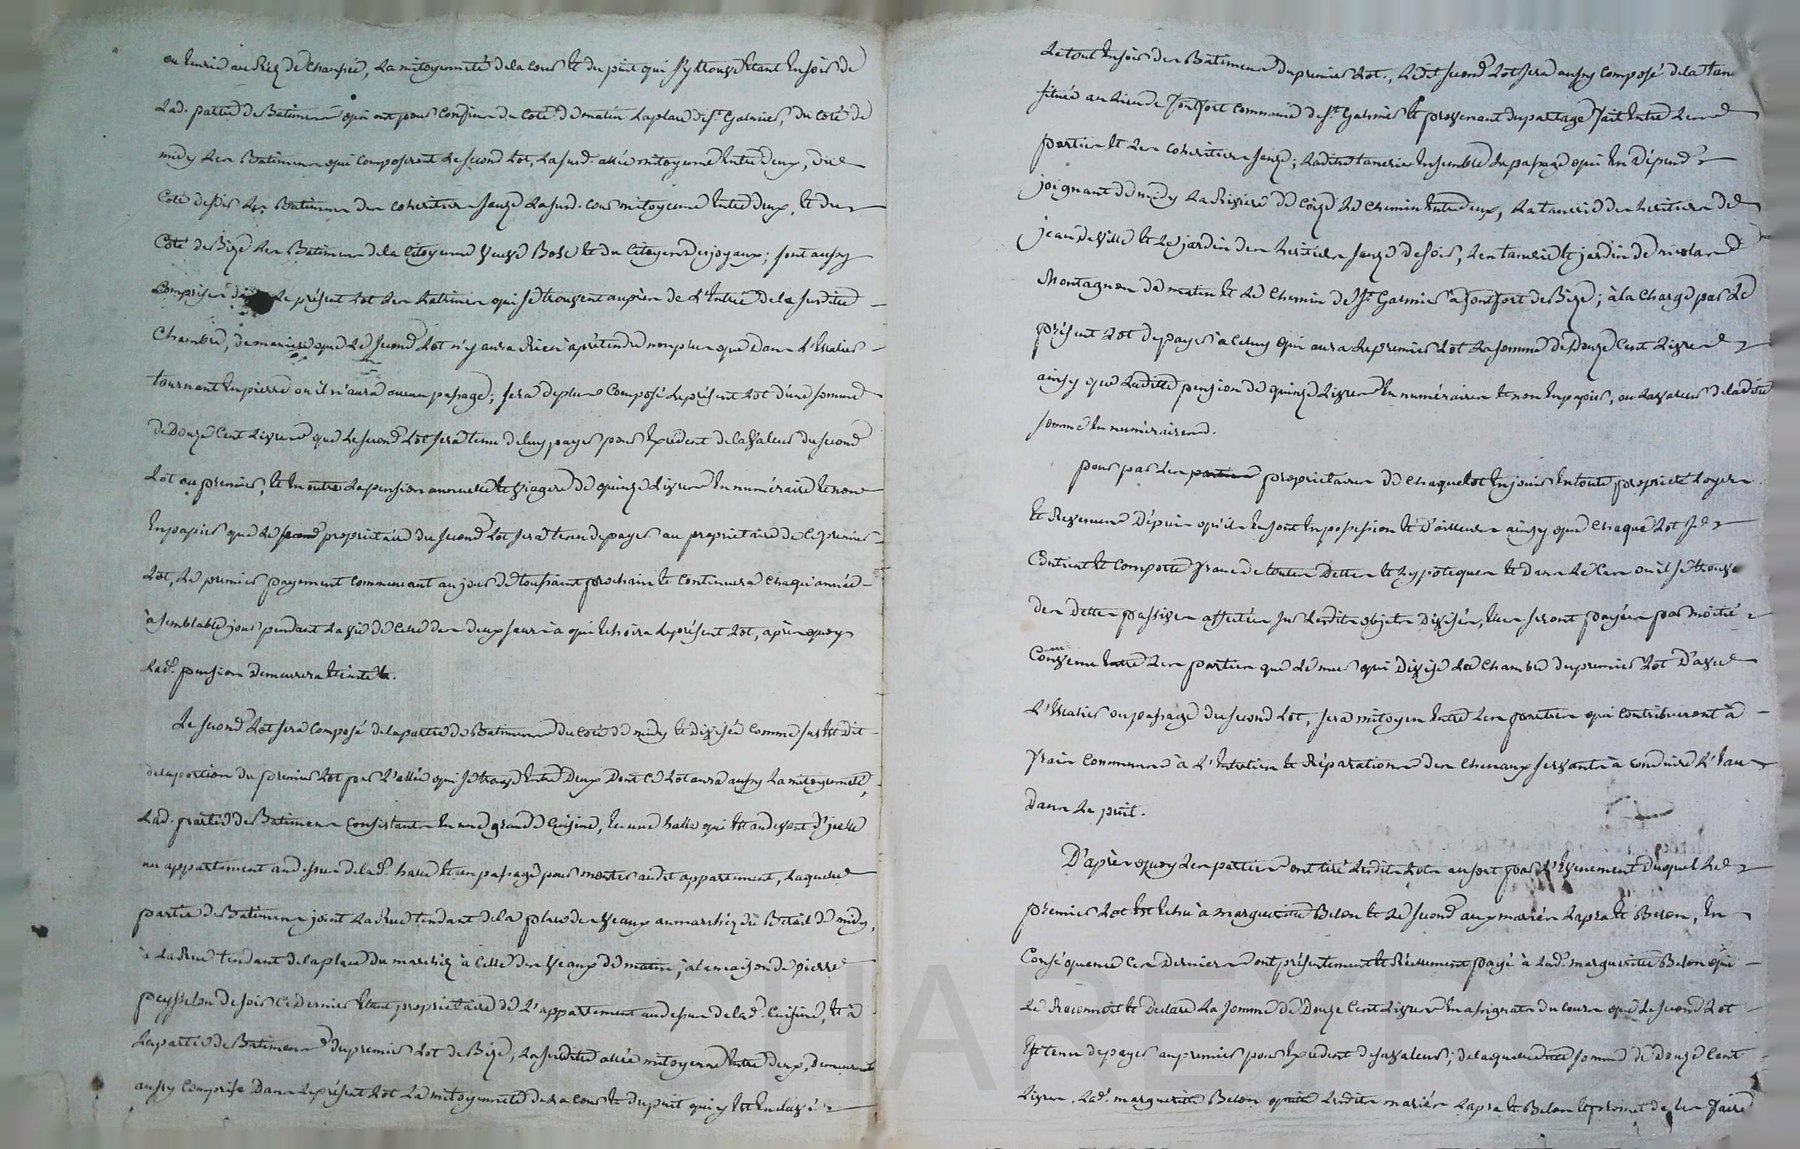 ou Ecurie au Rez de chaussée, La mitoyenneté de la cour et du puit qui s'y trouve Etant Ensoir de
Lad. partie de Batimens qui ont pour Confins du Coté de matin La place de St. Galmier, du Coté de
midy Les Batimens qui composeront Le second Lot, La susd. allée mitoyenne Entre deux, du
Coté de soir Les Batimens des coheritiers Jauzé La susd. Cour mitoyenne Entre deux, Et du
Coté de Bize Les Batimens de la Citoyenne veuve Bose Et du Citoyen dujoyaux; sont aussy
Comprises dans Le présent Lot Les Latrines qui se trouvent auprès de L'Entrée de la susditte
Chambre, de maniere que Le second Lot n'y aura Rien à prétendre non plus que dans L'Escalier
tournant En pierre ou il n'aura aucun passage; sera de plus Composé Le présent Lot d'une somme
de Douze Cent Livres que Le second Lot sera tenu de luy payer pour Excédent de la valeur du second
Lot au premier, Et En outre La pension annuelle Et viagere de quinze Livres En numéraire Et non
En papier que Le propriétaire du second Lot sera tenu de payer au propriétaire de Ce premier
Lot, Le premier payement Commencant au jour de toussaint prochain Et Continuera Chaque année
à semblable jour pendant La vie de Celle des deux sœurs à qui Echoira Le présent Lot, après quoy
Lad. pension demeurera Eteinte.
Le second Lot sera Composé de la partie de Batimens du Coté de midy Et divisée Comme sus Est Dit
de la portion du premier Lot par L'allée qui se trouve Entre Deux Dont Ce Lot aura aussy La mitoyenneté,
Lad. partie de Batimens Consistante En une grande Cuisine, En une halle qui Est au devant d'icelle
un appartement au dessus de lad. halle Et un passage pour monter audit appartement, Laquelle
partie de Batimens joint La Rue tendant de la place des veaux au marchéz du Bétail de midy,
à La Rue tendant de la place du marchéz à Celle des veaux de matin; à la maison de pierre
peysselon de soir Ce dernier Etant propriétaire de L'appartement au dessus de lad. Cuisine, Et à
La partie de Batimens du premier Lot de Bize, La susditte allée mitoyenne Entre deux, demeurant
aussy Comprise Dans Le présent Lot La mitoyenneté de la cour Et du puit qui y Est Enclavé
Le tout Ensoir des Batimens du premier Lot., Ledit second Lot sera aussy Composé de la tan
située au Lieu de fontfort Commune de St. Galmier Et provenant du partage fait Entre Les
parties Et Les Coheritiers Jauzé; Laditte tanerie Ensemble Le passage qui En dépend
joignant de midy La Riviere de Coize Le Chemin Entre deux, La tanerie des heritiers de
jean deville Et Le jardin des heritiers Jauzé de soir, Les tanerie Et jardin de nicolas
Montagnon de matin Et Le Chemin de St. Galmier à fontfort de Bize; à la Charge par Le
présent Lot de payer à Celuy qui aura Le premier Lot La somme de Douze Cent Livres
ainsy que Laditte pension de quinze Livres En numéraires Et non En papier, ou La valeur de laditte
somme En numéraires.
pour par Les propriétaires de Chaque Lot En jouir En toute propriété Loyers
Et Revenus Dépuis qu'ils En sont En possession Et D'ailleurs ainsy que Chaque Lot se
Contient Et Comporte franc de toutes Dettes Et hypoteques Et Dans Le Cas ou il se trouve
des dettes passives affectées sur Lesdits objets Divisés, Elles seront payées par moitié
Convenu Entre Les parties que Le mur qui Divise La Chambre du premier Lot D'avec
L'Escalier ou passage du second Lot, sera mitoyen Entre Les parties qui Contribueront à
frais Communs à L'Entretien Et Réparations des Cheneaux servants à Conduire L'Eau
Dans Le puit.
D'après quoy Les parties ont tiré Lesdits Lots au sort par L'Evenement Duquel Le
premier Lot Est Echu à marguerite Belon Et Le second aux mariés Lapra Et Belon, En
Conséquence Ces Derniers ont présentement Et Réellement payé à Lad. marguerite Belon qui
Le Reconnoit Et Declare La somme de Douze Cent Livres En assignats du Cours que Le second Lot
Est tenu de payer au premier pour Excédent de sa valeur; de laquelle somme de Douze Cent
Livres, Lad. marguerite Belon quitte Lesdits mariés Lapra Et Belon Et promet de Les faire
CHAREYRO